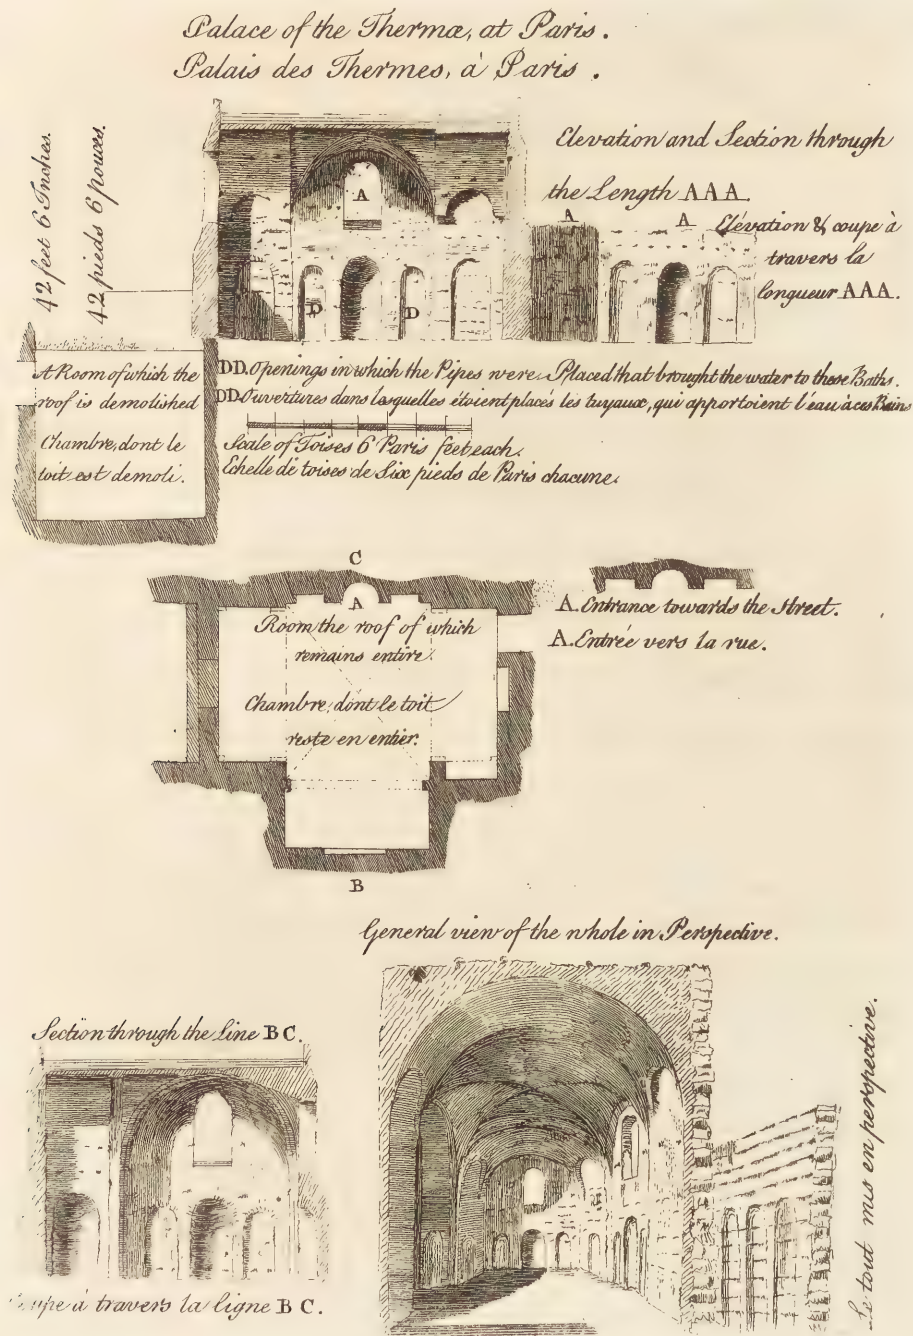 Palace of the Thermæ, at Paris.
Palais des Thermes, à Paris.
42 feet 6 Inches.
42 pieds 6 pouces.
Elevation and Section through
the Length AAA.
A
A
A
Elévation & coupe à
travers la
longueur AAA.
D
D
A Room of which the
roof is demolished
Chambre, dont le
toit est demoli.
DD. Openings in which the Pipes were Placed that brought the water to these Baths.
DD. Ouvertures dans lesquelles étoient placés les tuyaux, qui apportoient l'eau à ces Bains
Scale of Toises 6 Paris feet each.
Echelle de toises de Six pieds de Paris chacune.
C
A
Room the roof of which
remains entire.
Chambre, dont le toit
reste en entier.
B
A. Entrance towards the Street.
A. Entrée vers la rue.
General view of the whole in Perspective.
Section through the Line BC.
à travers la ligne BC.
Le tout mis en perspective.